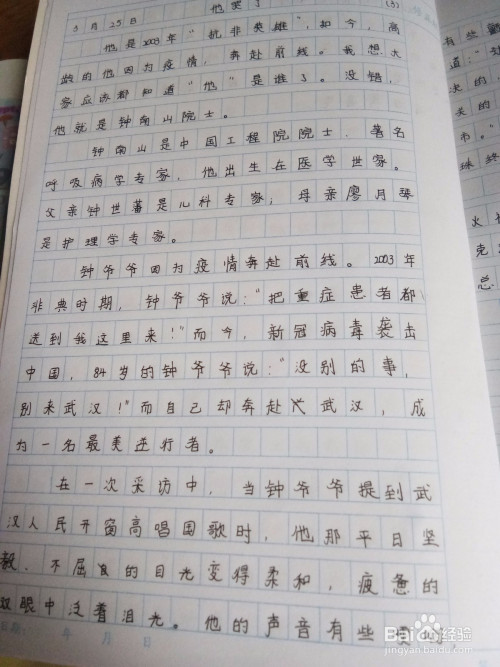 3月25日 他哭了 (3)
他是2003年“抗非英雄”,如今,高
龄的他因为疫情,奔赴前线。我想大
家应该都知道“他”是谁了。没错,
他就是钟南山院士。
钟南山是中国工程院院士、著名
呼吸病学专家,他出生在医学世家。
父亲钟世藩是儿科专家;母亲廖月琴
是护理学专家。
钟爷爷因为疫情奔赴前线。2003年
非典时期,钟爷爷说:“把重症患者都
送到我这里来!”而今,新冠病毒袭击
中国,84岁的钟爷爷说:“没别的事,
别来武汉!”而自己却奔赴武汉,成
为一名最美逆行者。
在一次采访中,当钟爷爷提到武
汉人民开窗高唱国歌时,他那平日坚
毅、不屈的目光变得柔和,疲惫的
双眼中泛着泪光。他的声音有些
年 月 日
有些
道:“
决的
关的
市。”
珠终
火
克
总
Baidu经验
jingyan.baidu.com